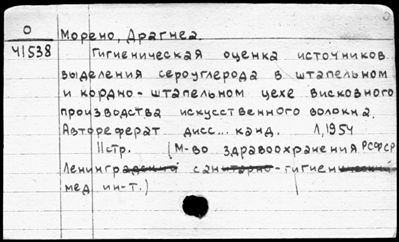 О
41538
Морено, Драгнеа.
Гигиеническая оценка источников
выделения сероуглерода в штапельном
и кордно-штапельном цехе вискозного
производства искусственного волокна.
Автореферат дисс... канд. Л, 1954
11стр. (М-во здравоохранения РСФСР
Ленинградский санитарно-гигиенический
мед ин-т.)